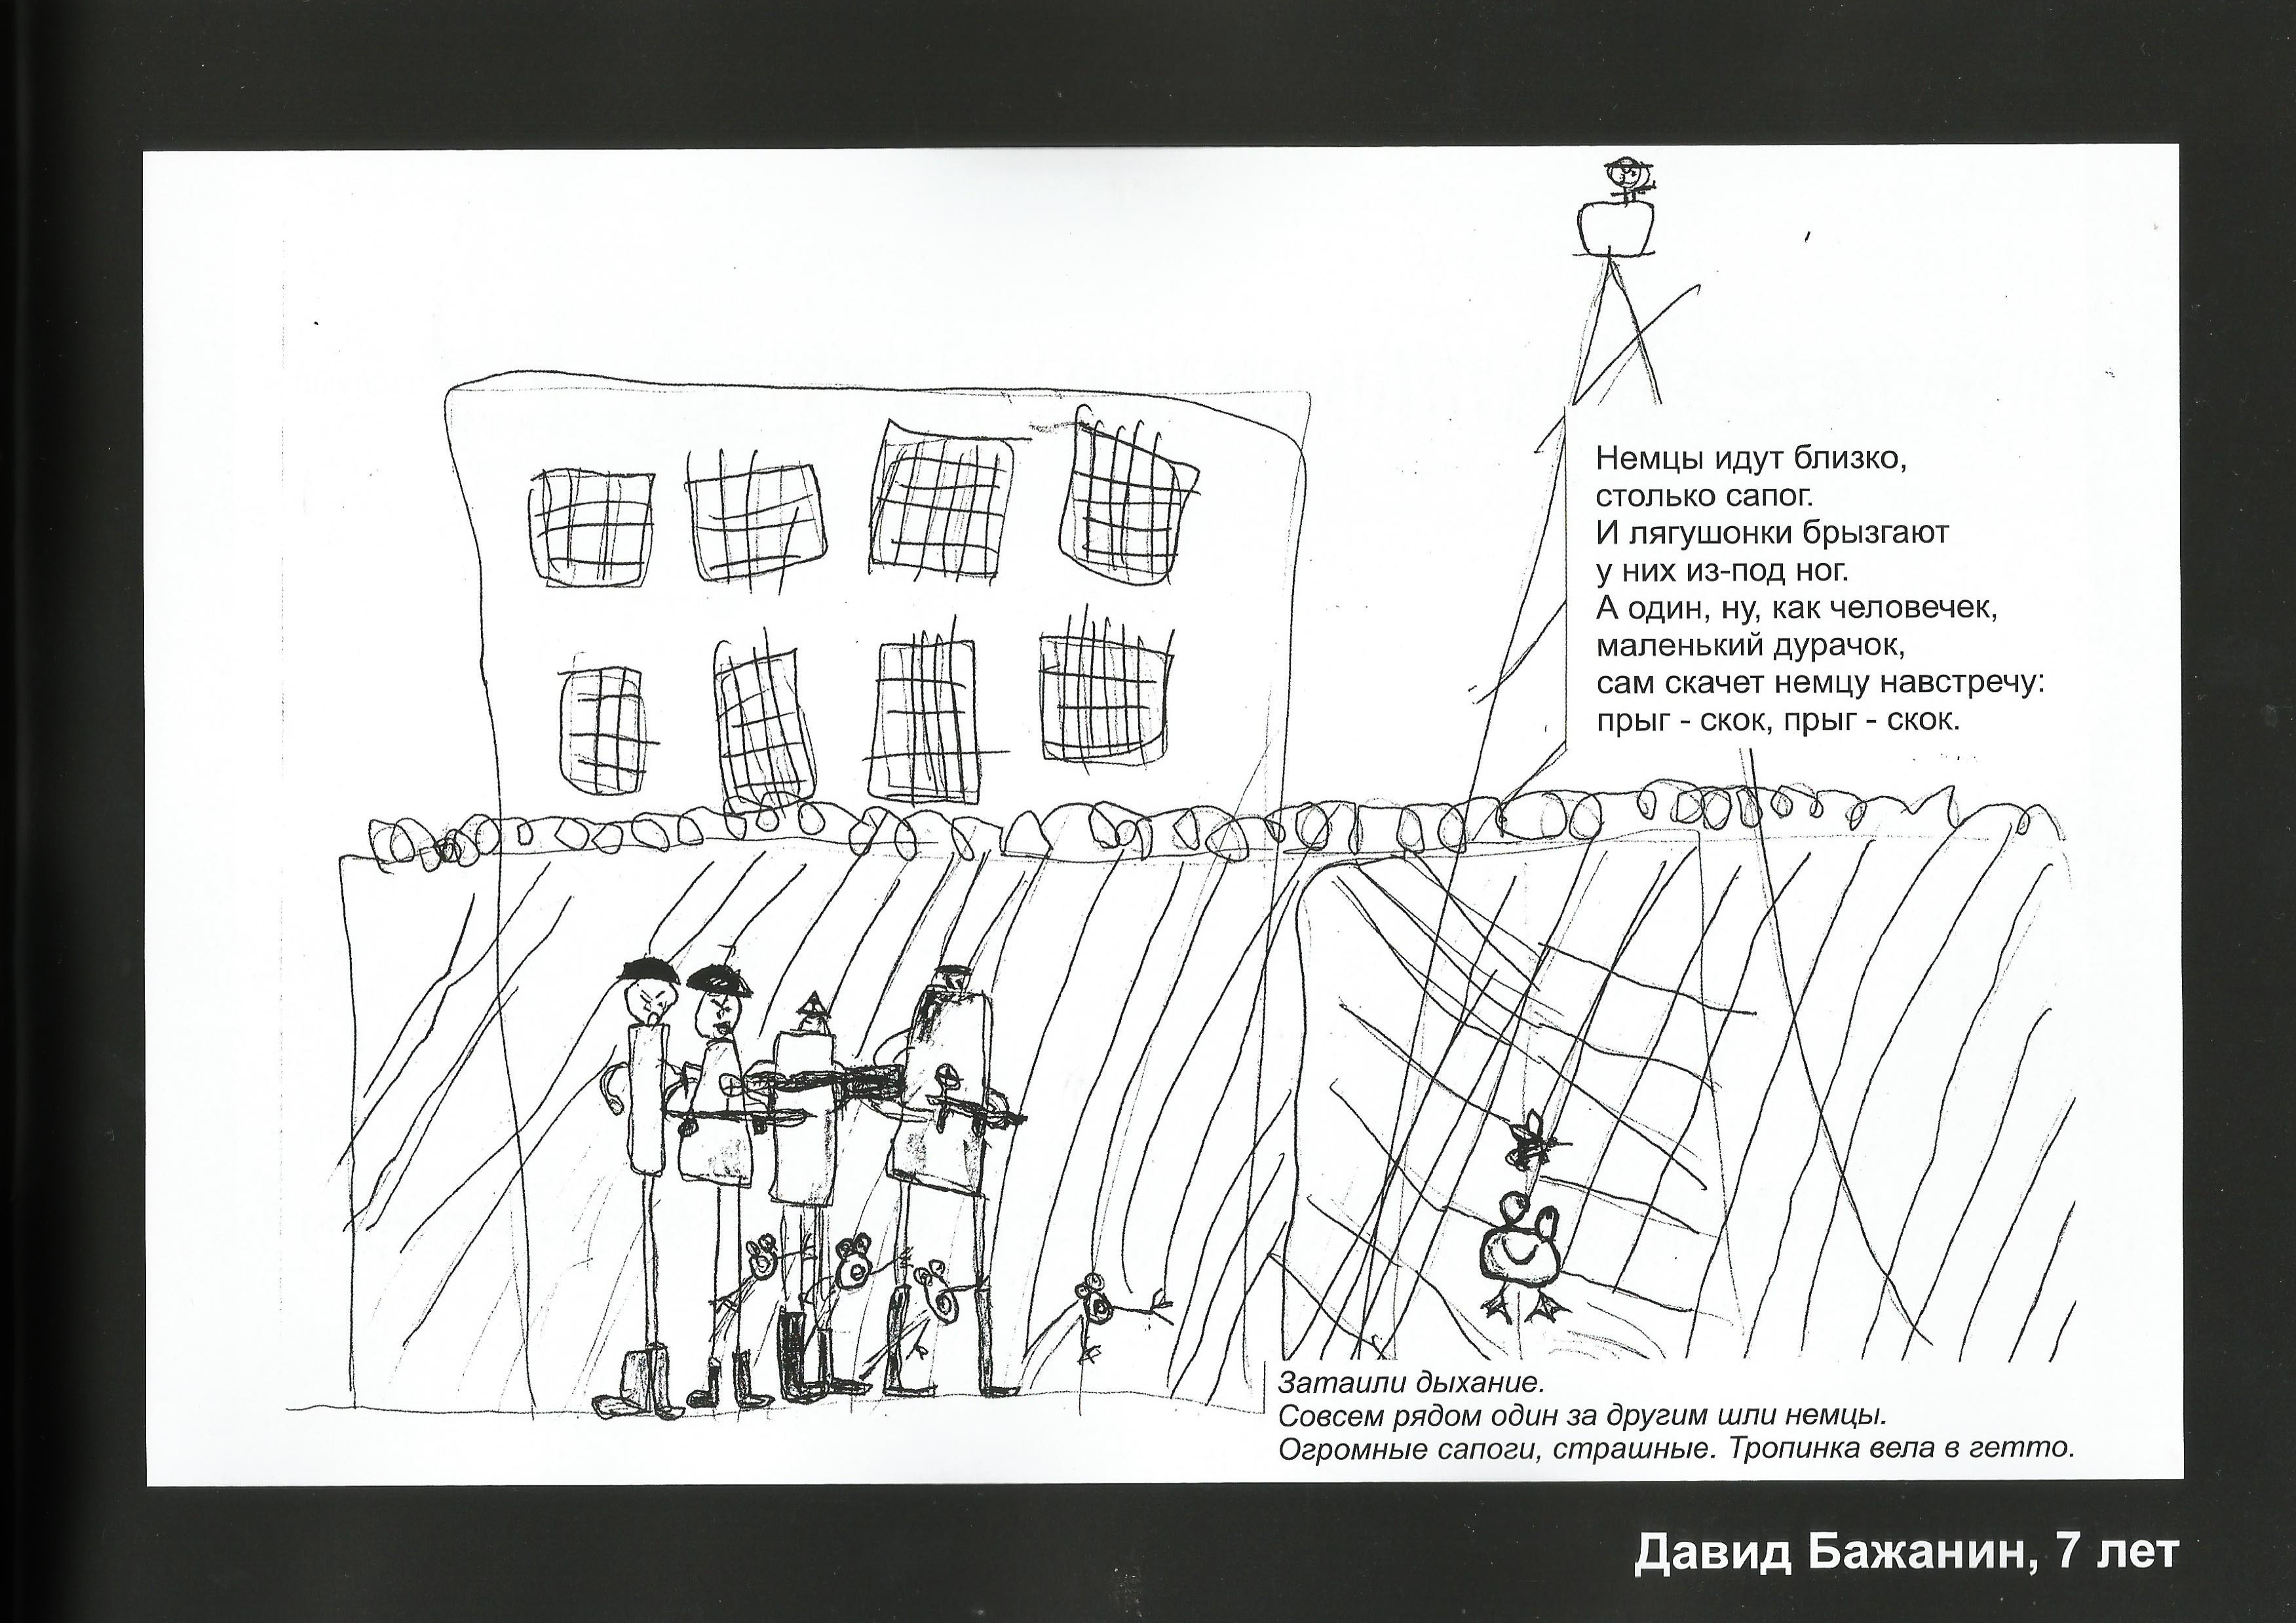 Немцы идут близко,
столько сапог.
И лягушонки брызгают
у них из-под ног.
А один, ну, как человечек,
маленький дурачок,
сам скачет немцу навстречу:
прыг - скок, прыг - скок.
Затаили дыхание.
Совсем рядом один за другим шли немцы.
Огромные сапоги, страшные. Тропинка вела в гетто.
Давид Бажанин, 7 лет